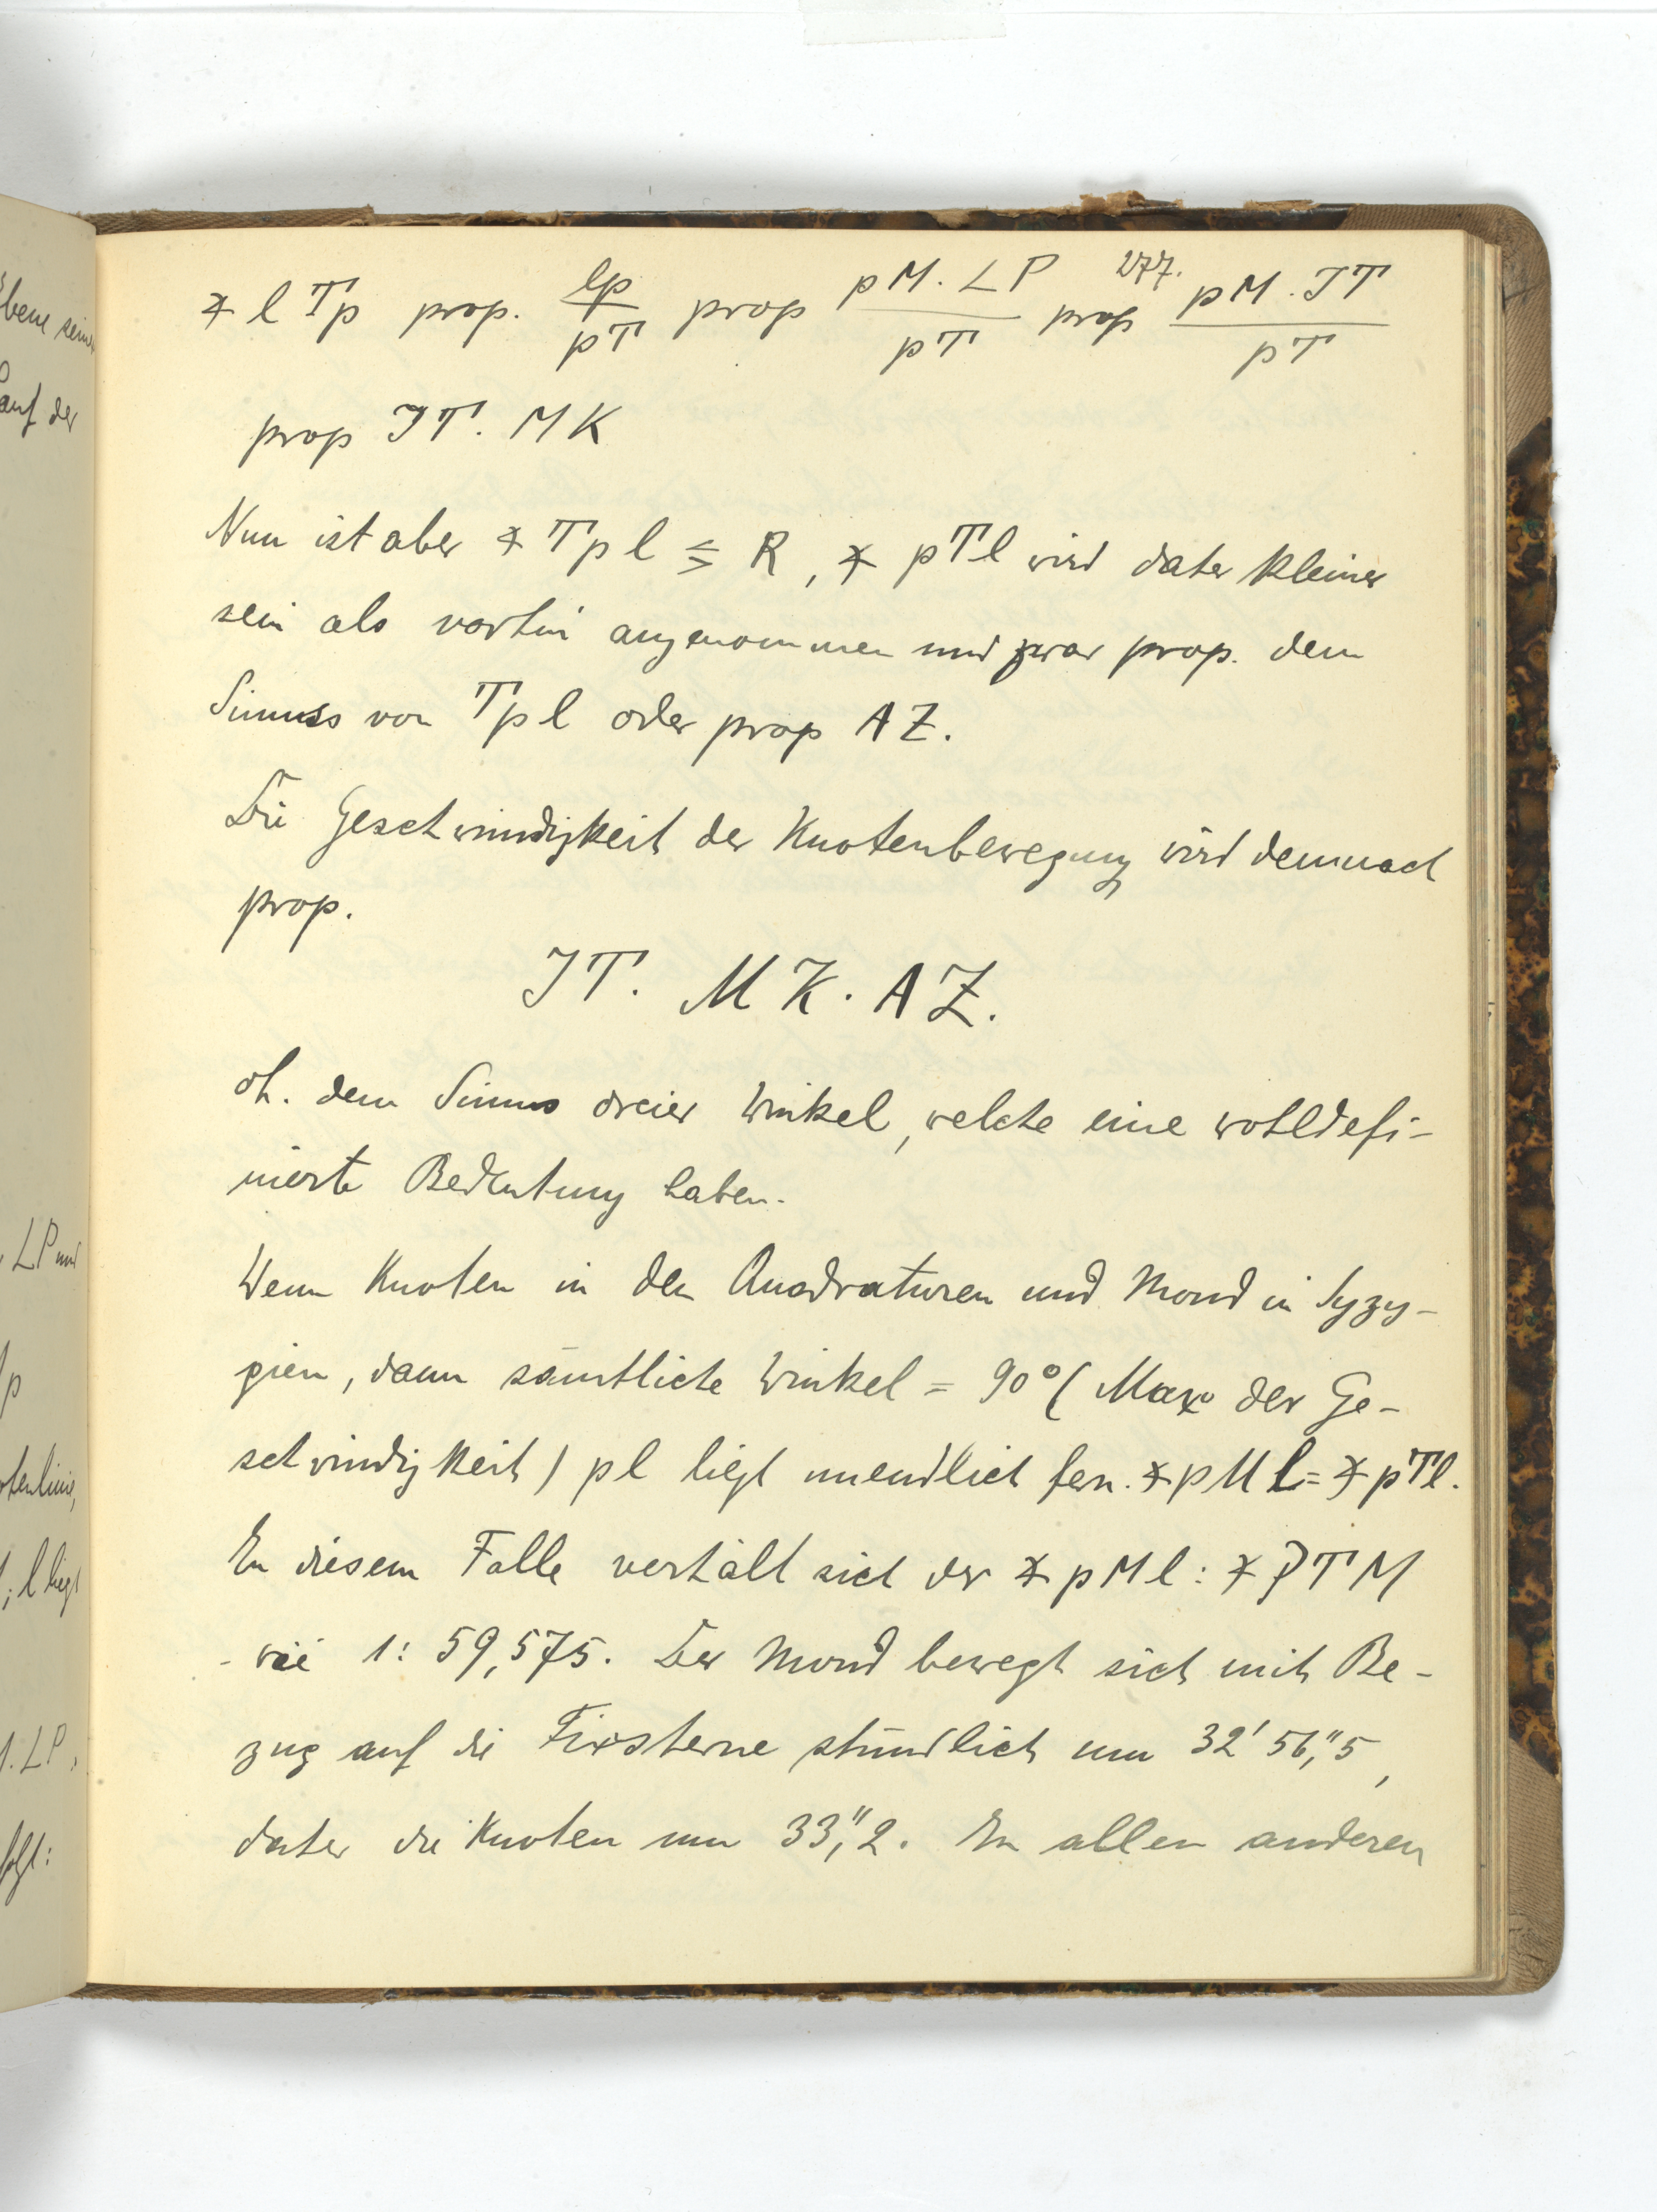 277.
∡ l T p prop. lp/pT prop pM. LP/pT prop pM. IT/pT
prop IT. MK
Nun ist aber ∡ T p l ≶ R, ∡ pTl wird daher kleiner
sein als vorhin angenommen und zwar prop. dem
Sinus von T p l oder prop AZ.
Die Geschwindigkeit der Knotenbewegung wird demnach
prop.
IT. MK. AZ.
dh. dem Sinus dreier Winkel, welche eine wohldefi-
nierte Bedeutung haben.
Wenn Knoten in den Quadraturen und Mond in Syzy-
gien, dann sämtliche Winkel = 90° (Max der Ge-
schwindigkeit) pl liegt unendlich fern. ∡ pMl = ∡ pTl.
In diesem Falle verhält sich der ∡ pMl : ∡ PTM
wie 1: 59,575. Der Mond bewegt sich mit Be-
zug auf die Fixsterne stündlich um 32' 56,"5,
daher die Knoten um 33,"2. In allen anderen
bene seine
auf der
LP und
p
otenlinie,
; l liegt
. LP,
folgt: